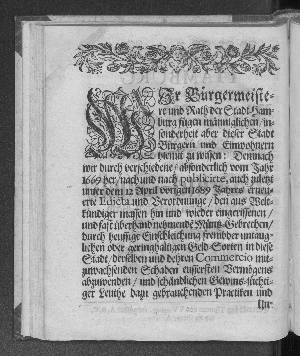 WIr Bürgermeiste-
re und Rath der Stadt Ham-
burg fügen männiglichen/ in-
sonderheit aber dieser Stadt
Bürgern und Einwohnern
hiemit zu wissen: Demnach
wir durch verschiedene/ absonderlich vom Jahr
1667 her/ nach und nach publicirte, auch zuletzt
unter dem 12 April vorigen 1689 Jahres erneu-
erte Edicta und Verordnunge/ den aus Welt-
kündiger massen hin und wieder eingerissenen/
und fast überhand nehmendē Müntz-Gebrechen/
durch heuffige Einschleichung frembder untaug-
lichen oder geringhaltigen Geld-Sorten in diese
Stadt/ derselben und dehren Commercio mit-
zuwachsenden Schaden eussersten Vermögens
abzuwenden/ und schändlichen Gewins-süchti-
ger Leuthe dazu gebrauchenden Practiken und